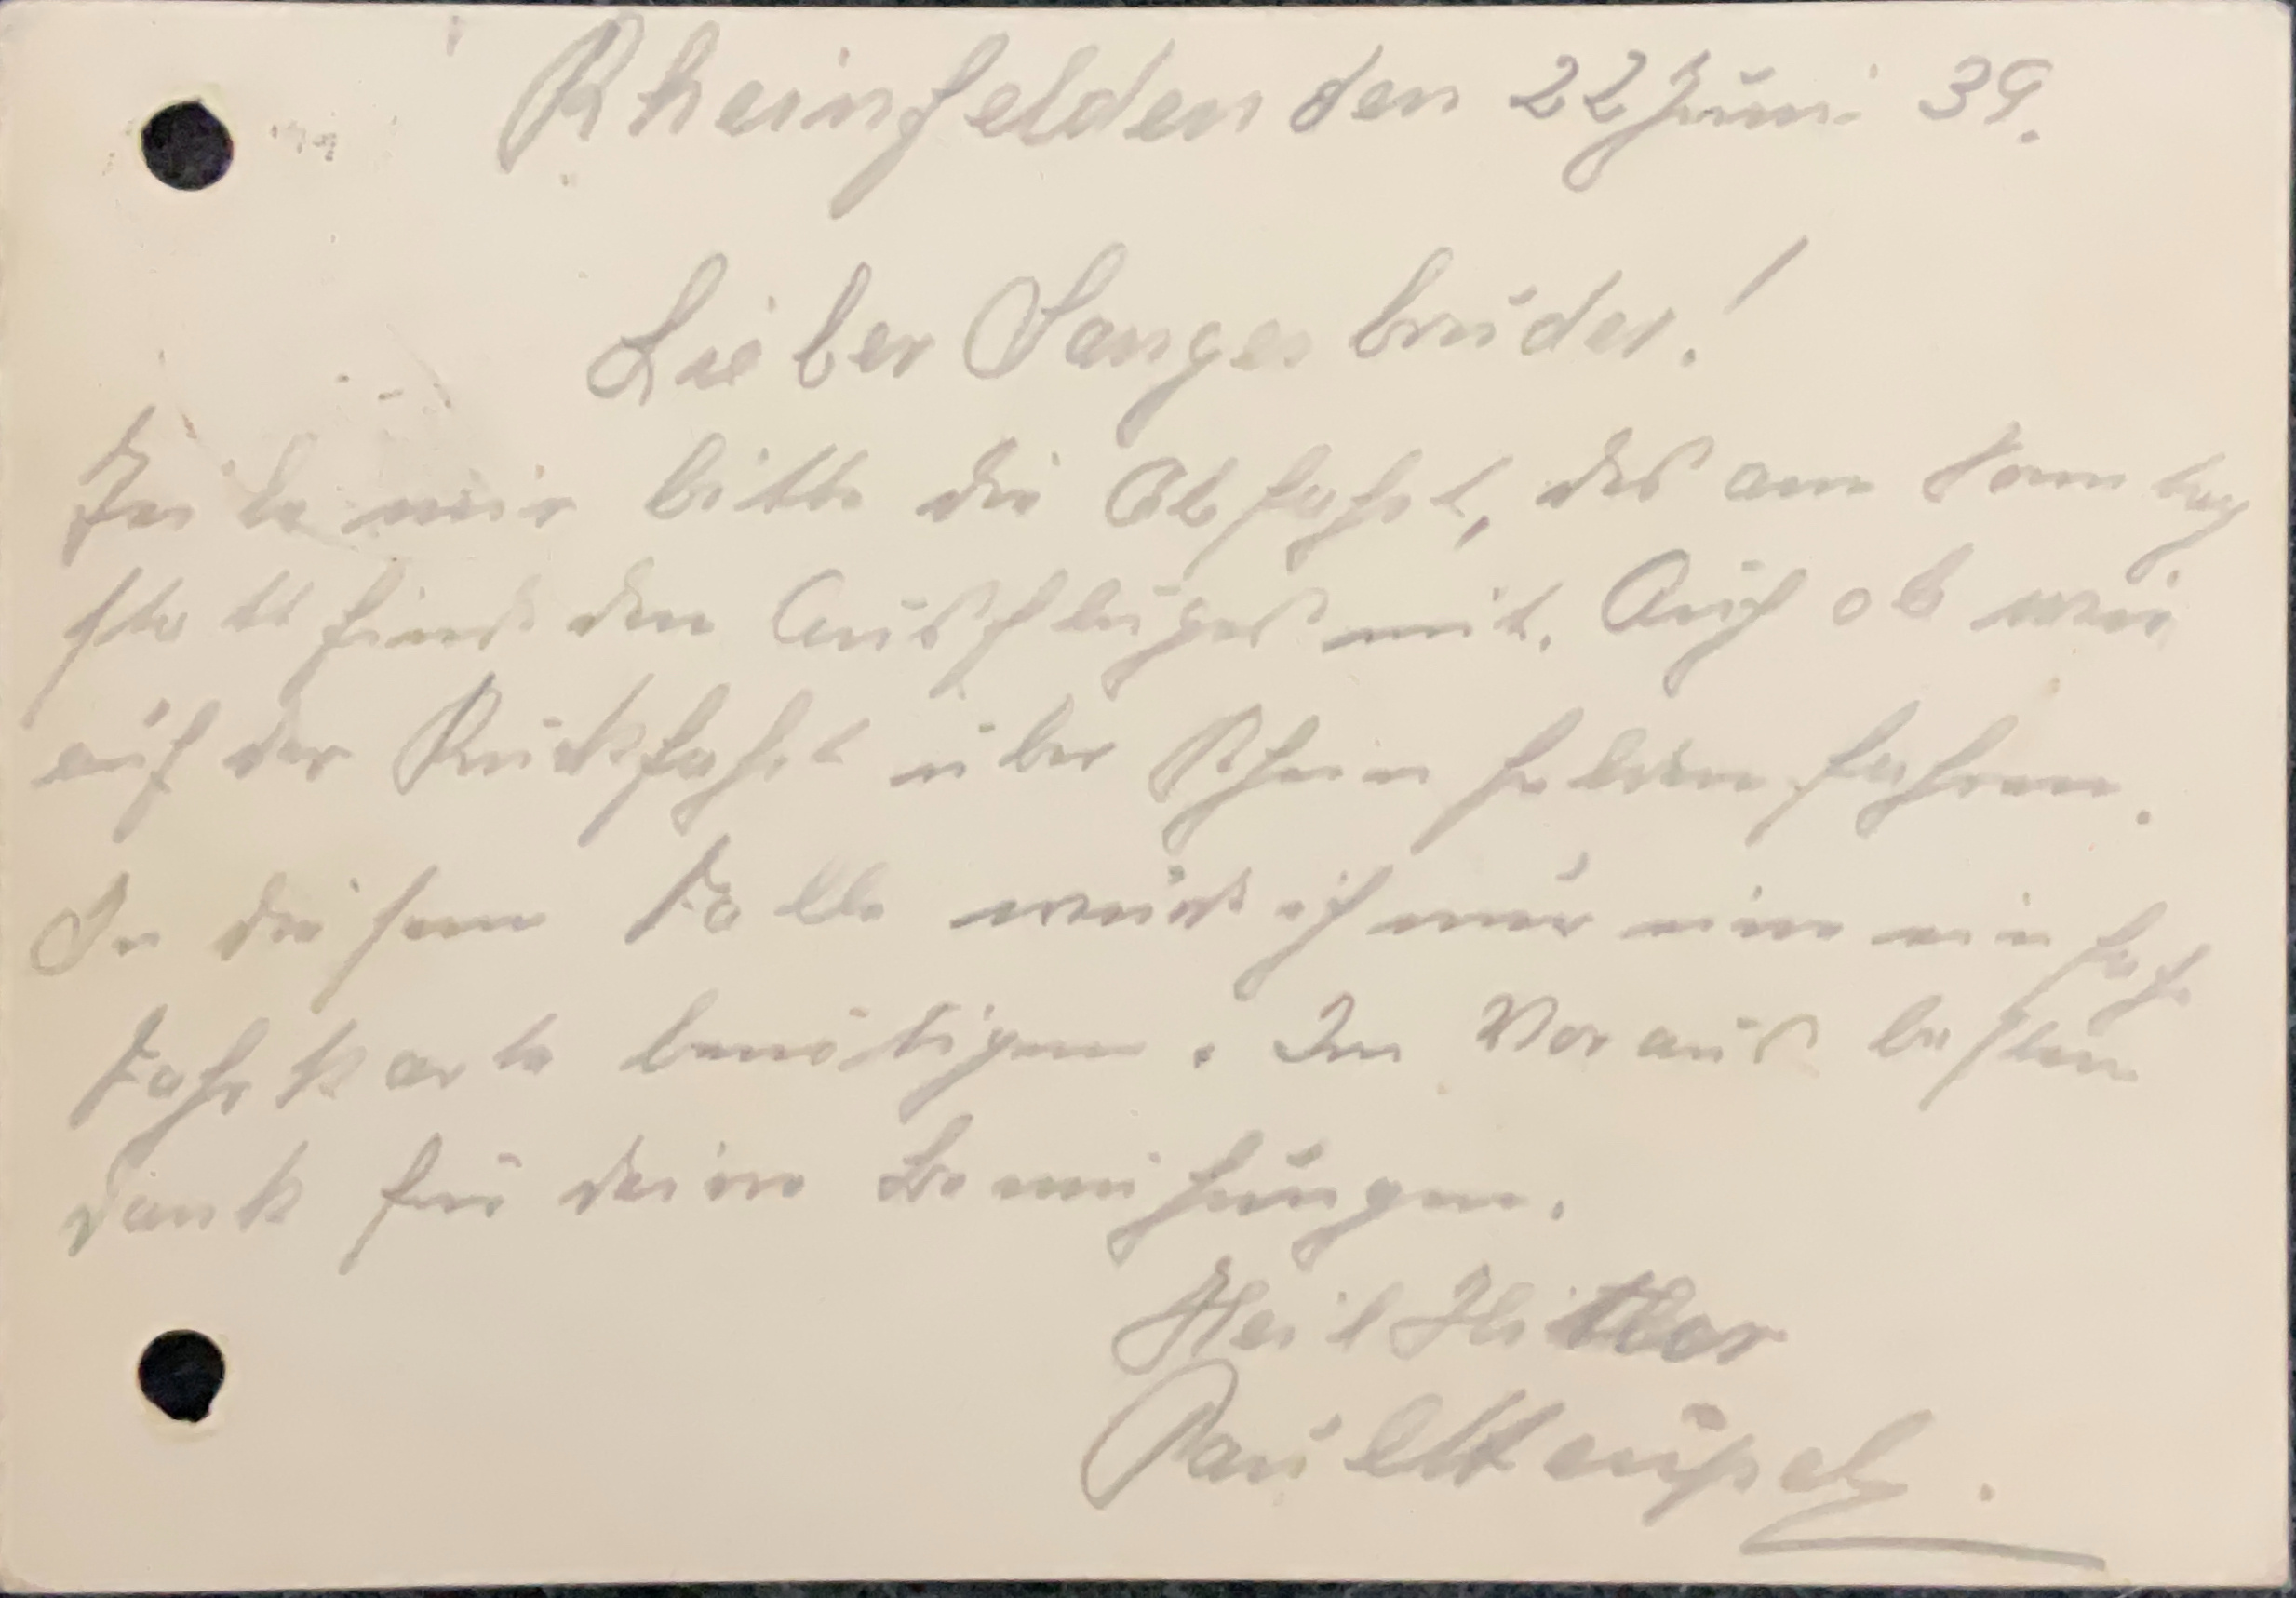 Rheinfelden den 22 Juni 39.
Lieber Sangesbruder!
Teile mir bitte die Abfahrt, des am Sonntag
stattfindenden Ausfluges mit. Auch ob wir
auf der Rückfahrt über Rheinfelden fahren.
In diesem Falle würde ich nur eine einfache
Fahrkarte benötigen. Im Voraus besten
Dank für deine Bemühungen.
Heil Hitler
Paul